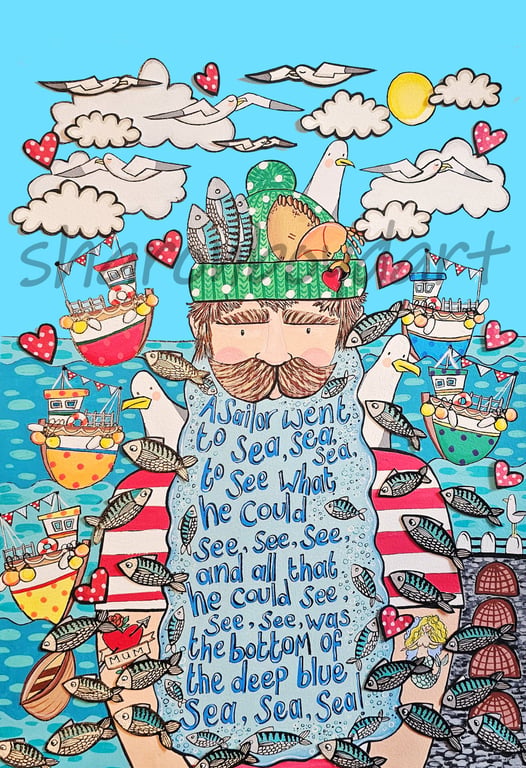 A Sailor went
to Sea, Sea, Sea,
to See what
he could
See, See, See,
and all that
he could See
See, See, was
the bottom of
the deep blue
Sea, Sea, Sea!
MUM